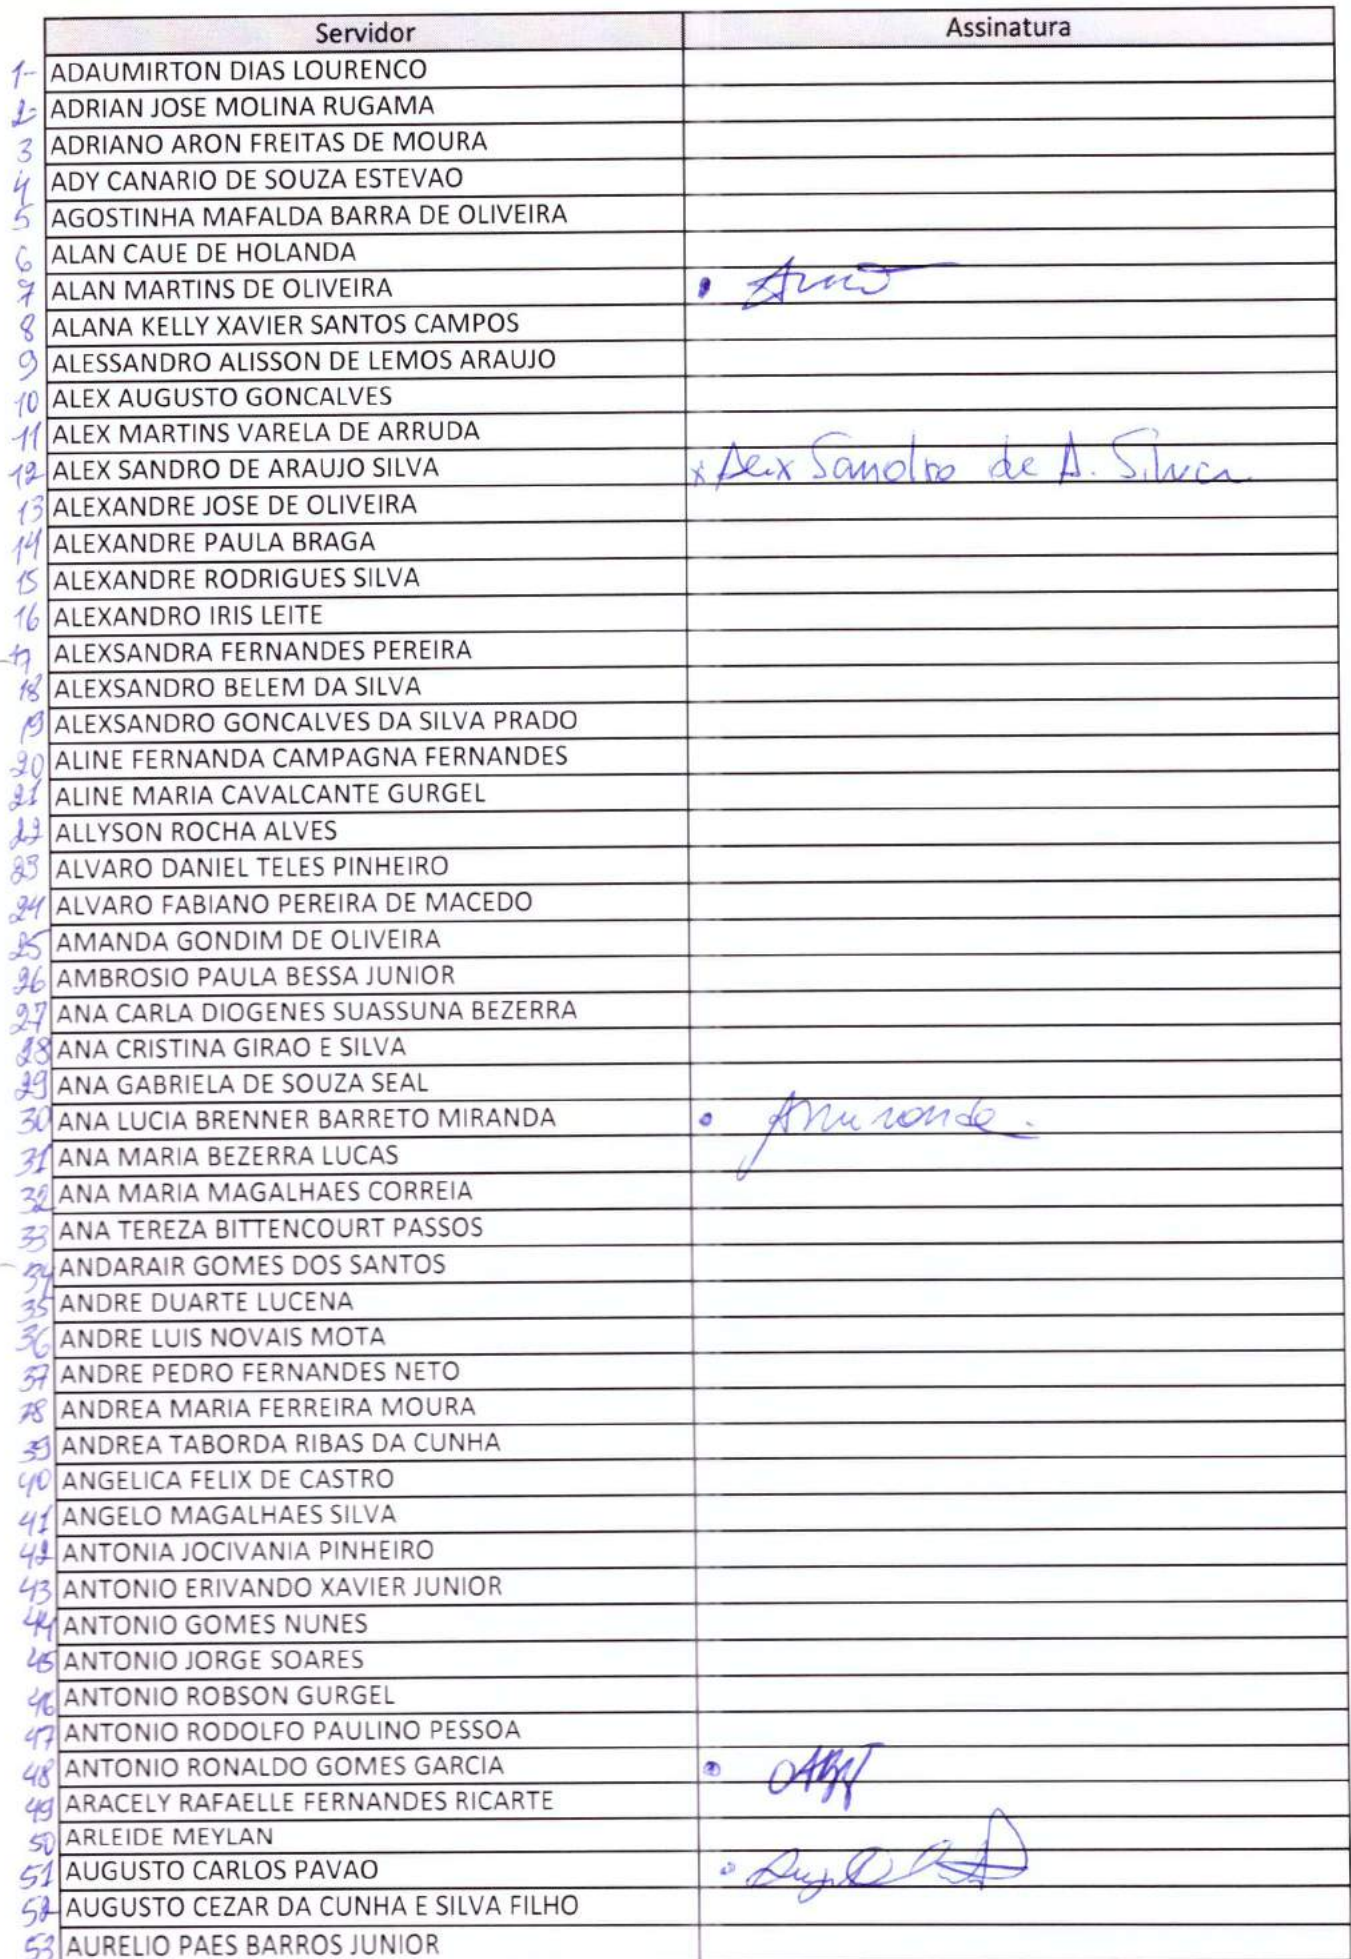 Servidor Assinatura
1- ADAUMIRTON DIAS LOURENCO
2- ADRIAN JOSE MOLINA RUGAMA
3 ADRIANO ARON FREITAS DE MOURA
4 ADY CANARIO DE SOUZA ESTEVAO
5 AGOSTINHA MAFALDA BARRA DE OLIVEIRA
6 ALAN CAUE DE HOLANDA
7 ALAN MARTINS DE OLIVEIRA
8 ALANA KELLY XAVIER SANTOS CAMPOS
9 ALESSANDRO ALISSON DE LEMOS ARAUJO
10 ALEX AUGUSTO GONCALVES
11 ALEX MARTINS VARELA DE ARRUDA
12 ALEX SANDRO DE ARAUJO SILVA x Alex Sandro de A. Silva
13 ALEXANDRE JOSE DE OLIVEIRA
14 ALEXANDRE PAULA BRAGA
15 ALEXANDRE RODRIGUES SILVA
16 ALEXANDRO IRIS LEITE
17 ALEXSANDRA FERNANDES PEREIRA
18 ALEXSANDRO BELEM DA SILVA
19 ALEXSANDRO GONCALVES DA SILVA PRADO
20 ALINE FERNANDA CAMPAGNA FERNANDES
21 ALINE MARIA CAVALCANTE GURGEL
22 ALLYSON ROCHA ALVES
23 ALVARO DANIEL TELES PINHEIRO
24 ALVARO FABIANO PEREIRA DE MACEDO
25 AMANDA GONDIM DE OLIVEIRA
26 AMBROSIO PAULA BESSA JUNIOR
27 ANA CARLA DIOGENES SUASSUNA BEZERRA
28 ANA CRISTINA GIRAO E SILVA
29 ANA GABRIELA DE SOUZA SEAL
30 ANA LUCIA BRENNER BARRETO MIRANDA
31 ANA MARIA BEZERRA LUCAS
32 ANA MARIA MAGALHAES CORREIA
33 ANA TEREZA BITTENCOURT PASSOS
34 ANDARAIR GOMES DOS SANTOS
35 ANDRE DUARTE LUCENA
36 ANDRE LUIS NOVAIS MOTA
37 ANDRE PEDRO FERNANDES NETO
38 ANDREA MARIA FERREIRA MOURA
39 ANDREA TABORDA RIBAS DA CUNHA
40 ANGELICA FELIX DE CASTRO
41 ANGELO MAGALHAES SILVA
42 ANTONIA JOCIVANIA PINHEIRO
43 ANTONIO ERIVANDO XAVIER JUNIOR
44 ANTONIO GOMES NUNES
45 ANTONIO JORGE SOARES
46 ANTONIO ROBSON GURGEL
47 ANTONIO RODOLFO PAULINO PESSOA
48 ANTONIO RONALDO GOMES GARCIA
49 ARACELY RAFAELLE FERNANDES RICARTE
50 ARLEIDE MEYLAN
51 AUGUSTO CARLOS PAVAO
52 AUGUSTO CEZAR DA CUNHA E SILVA FILHO
53 AURELIO PAES BARROS JUNIOR